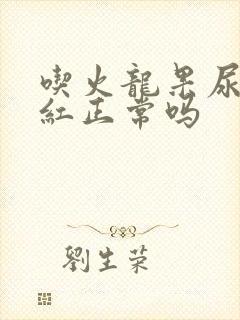 喫火龍果尿
紅正常吗
劉生荣